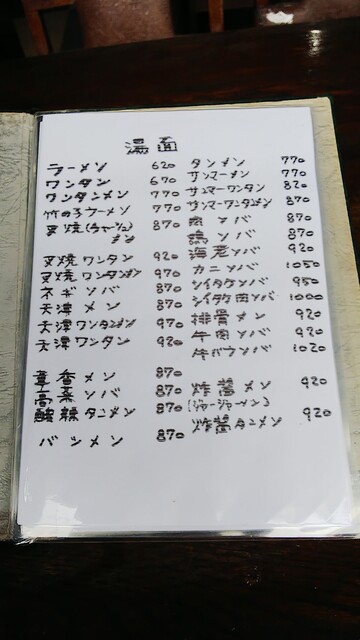 湯面
ラーメン 620
ワンタン 670
ワンタンメン 770
竹の子ラーメン 770
叉焼(チャーシュー)メン 870
叉焼ワンタン 920
叉焼ワンタンメン 970
ネギソバ 870
天津メン 870
天津ワンタンメン 970
天津ワンタン 920
章香メン 870
高菜ソバ 870
酸辣タンメン 870
バンメン 870
タンメン 770
サンマーメン 770
サンマーワンタン 820
サンマーワンタンメン 870
肉ソバ 870
鶏ソバ 870
海老ソバ 920
カニソバ 1050
シイタケソバ 950
シイタケ肉ソバ 1000
排骨メン 920
牛肉ソバ 920
牛バラソバ 1020
炸醤メン 920
(ジャージャーメン)
炸醤タンメン 920